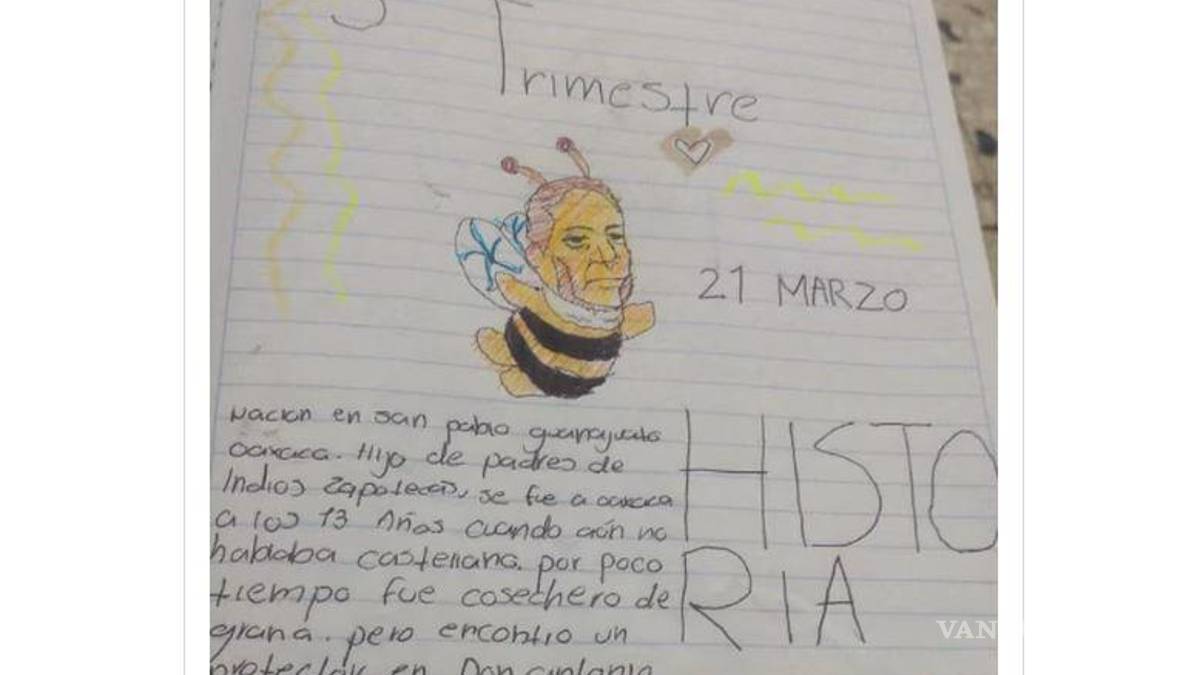 Trimestre
21 MARZO
Nacion en san pablo guanajuato
oaxaca. Hijo de padres de
Indios zapotecas, se fue a oaxaca
a los 13 Años cuando aún no
hablaba castellano. por poco
tiempo fue cosechero de
grana. pero encontro un
protector en Don
HISTO
RIA
VAN